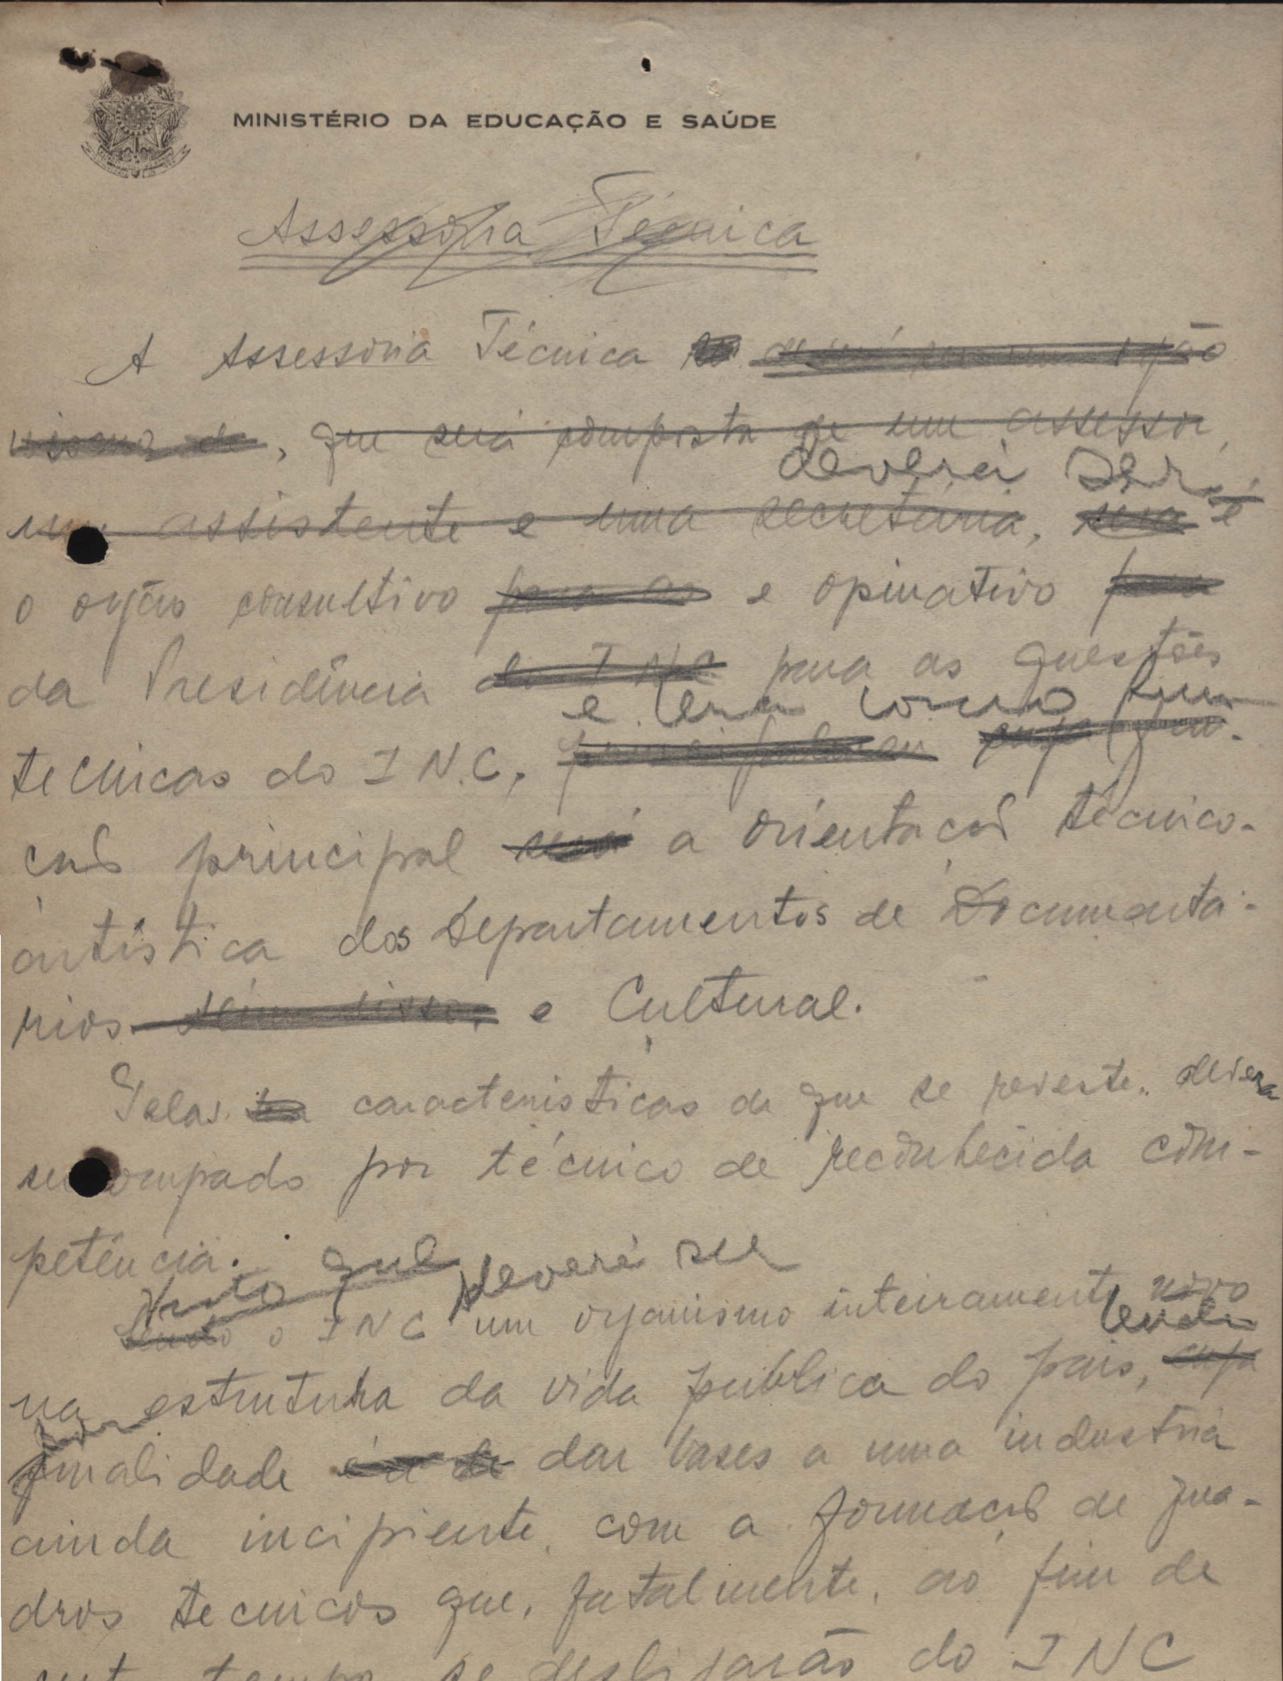 MINISTÉRIO DA EDUCAÇÃO E SAÚDE
Assessoria Técnica
A Assessoria Técnica deverá ser um orgão
, que será composta de um assessor,
deverá ser
um assistente e uma secretária, será é
o orgão consultivo para as e opinativo para
da Presidência do INC para as questões
e terá como fun
tecnicas do I.N.C, cuja fun-
ção principal será a orientação técnico-
artística dos Departamentos de Documenta-
rios e Cultural.
Pelas caracteristicas de que se reveste, deverá
ser ocupado por técnico de reconhecida com-
petência.
Visto que deverá ser
Sendo o INC um organismo inteiramente novo
tendo
na estrutura da vida publica do pais, cuja
por
finalidade é a de dar bases a uma industria
ainda incipiente, com a formação de qua-
dros tecnicos que, fatalmente, ao fim de
tempo se desligarão do INC